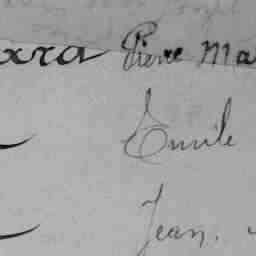 xra Pierre Ma
Emile
Jean.